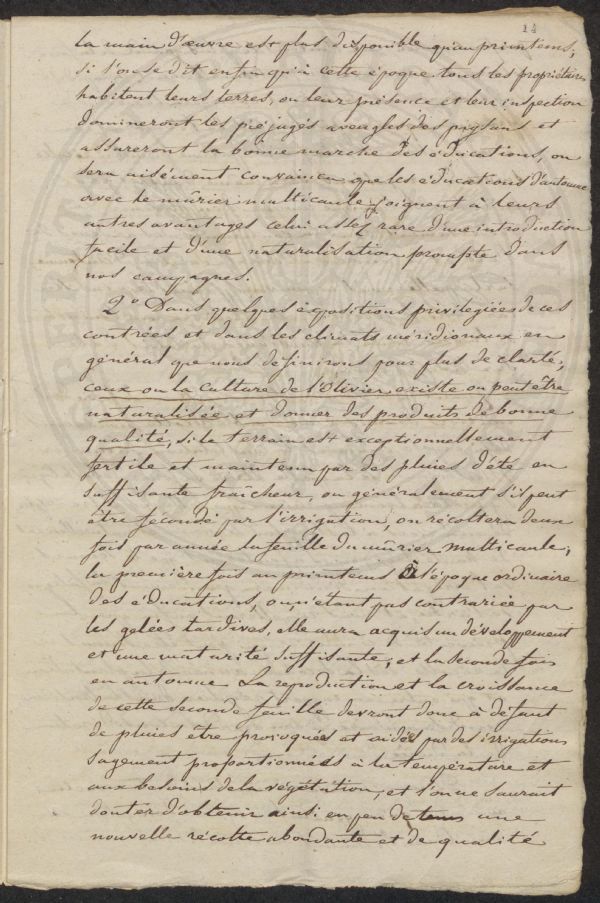 14
la main d'œuvre est plus disponible qu'au printems,
si l'on se dit enfin qu'à cette époque tous les propriétaires
habitent leurs terres, ou leur présence et leur inspection
domineront les préjugés aveugles des paysans et
assureront la bonne marche des éducations, on
sera aisément convaincu que les éducations d'automne
avec le mûrier multicaule joignent à leurs
autres avantages celui assez rare d'une introduction
facile et d'une naturalisation prompte dans
nos campagnes.
2° Dans quelques expositions privilegiées de ces
contrées et dans les climats méridionaux en
général que nous définirons pour plus de clarté,
ceux ou la culture de l'Olivier existe ou peut être
naturalisée et donner des produits de bonne
qualité, si le terrain est exceptionnellement
fertile et maintenu par des pluies d'été en
suffisante fraîcheur, ou généralement s'il peut
être fécondé par l'irrigation, on récoltera deux
fois par année la feuille du mûrier multicaule;
la première fois au printems à l'époque ordinaire
des éducations, ou n'étant pas contrariée par
les gelées tardives, elle aura acquis un développement
et une maturité suffisante, et la seconde fois
en automne. La reproduction et la croissance
de cette seconde feuille devront donc à défaut
de pluies être provoquées et aidées par des irrigations
sagement proportionnées à la température et
aux besoins de la végétation, et l'on ne saurait
douter d'obtenir ainsi en peu de tems une
nouvelle récolte abondante et de qualité